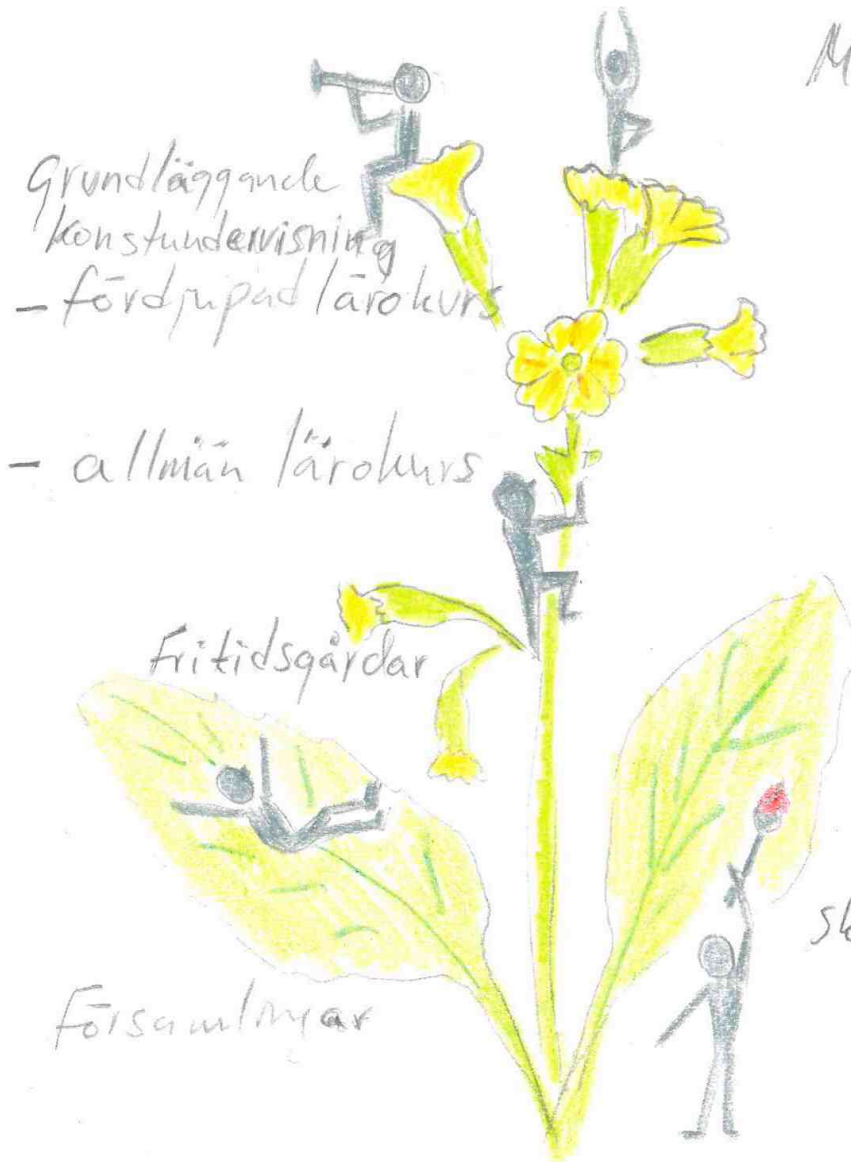 Grundläggande
konstundervisning
- fördjupad lärokurs
- allmän lärokurs
Fritidsgårdar
Församlingar